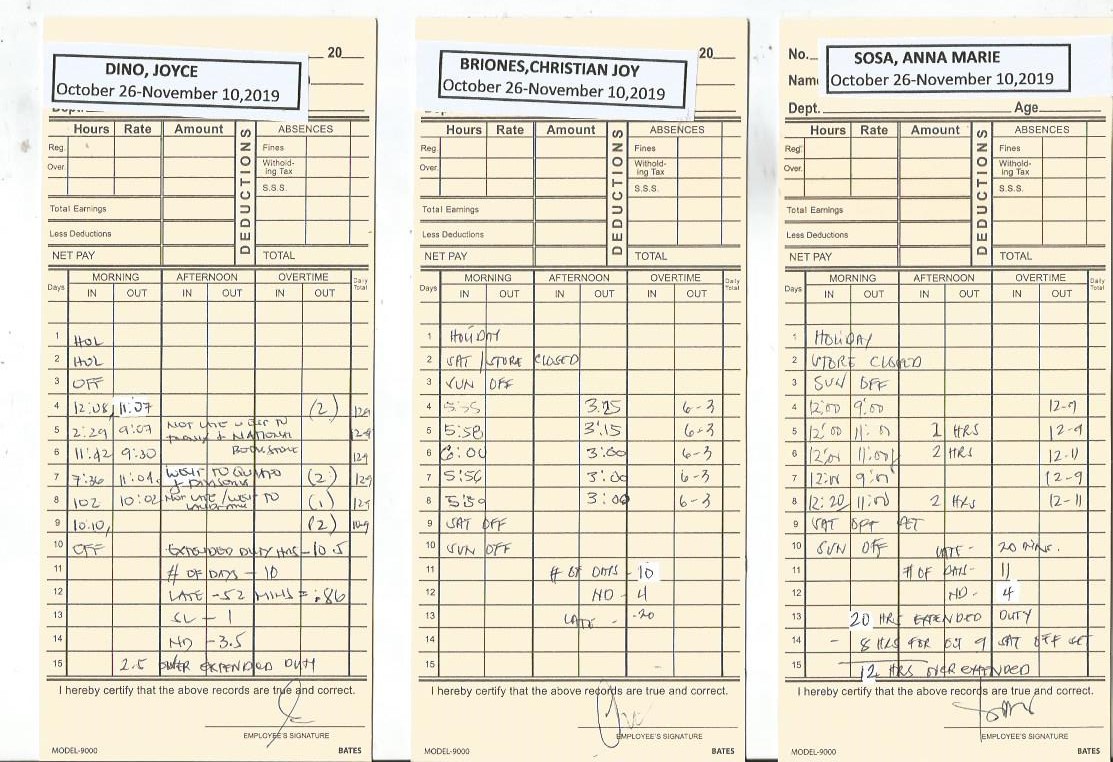 20
DINO, JOYCE
October 26-November 10,2019
Hours Rate Amount DEDUCTIONS ABSENCES
Reg. Fines
Over. Withold-
ing Tax
S.S.S.
Total Earnings
Less Deductions
NET PAY TOTAL
Days MORNING AFTERNOON OVERTIME Daily Total
IN OUT IN OUT IN OUT
1 HOL
2 HOL
3 OFF
4 12:08, 11:07 (2) 12-9
5 2:29 9:07 NOT LATE WENT TO 12-9
& NATIONAL
6 11:42 9:30 BOOKSTORE 12-9
7 7:36 11:01 WENT TO (2) 12-9
& DIVISORIA
8 102 10:02 NOT LATE / WENT TO (1) 12-9
9 10:10, (2) 10-9
10 OFF EXTENDED DUTY HRS - 10.5
11 # OF DAYS - 10
12 LATE - 52 MINS = .86
13 SL - 1
14 ND - 3.5
15 2.5 OVER EXTENDED DUTY
I hereby certify that the above records are true and correct.
EMPLOYEE'S SIGNATURE
MODEL-9000 BATES
20
BRIONES,CHRISTIAN JOY
October 26-November 10,2019
Hours Rate Amount DEDUCTIONS ABSENCES
Reg. Fines
Over. Withold-
ing Tax
S.S.S.
Total Earnings
Less Deductions
NET PAY TOTAL
Days MORNING AFTERNOON OVERTIME Daily Total
IN OUT IN OUT IN OUT
1 HOLIDAY
2 SAT / STORE CLOSED
3 SUN OFF
4 5:55 3:25 6-3
5 5:58 3:15 6-3
6 6:00 3:00 6-3
7 5:56 3:00 6-3
8 5:59 3:00 6-3
9 SAT OFF
10 SUN OFF
11 # OF DAYS - 10
12 ND - 4
13 LATE - .20
14
15
I hereby certify that the above records are true and correct.
EMPLOYEE'S SIGNATURE
MODEL-9000 BATES
No.
SOSA, ANNA MARIE
Name
October 26-November 10,2019
Dept. Age
Hours Rate Amount DEDUCTIONS ABSENCES
Reg. Fines
Over. Withold-
ing Tax
S.S.S.
Total Earnings
Less Deductions
NET PAY TOTAL
Days MORNING AFTERNOON OVERTIME Daily Total
IN OUT IN OUT IN OUT
1 HOLIDAY
2 STORE CLOSED
3 SUN OFF
4 12:00 9:00 12-9
5 12:00 11:01 2 HRS 12-9
6 12:01 11:00 2 HRS 12-11
7 12:01 9:01 12-9
8 12:20 11:00 2 HRS 12-11
9 SAT OFF SET
10 SUN OFF LATE - 20 MINS.
11 # OF DAYS - 11
12 ND - 4
13 20 HRS EXTENDED DUTY
14 - 8 HRS FOR OCT 9 SAT OFF SET
15 12 HRS OVER EXTENDED
I hereby certify that the above records are true and correct.
EMPLOYEE'S SIGNATURE
MODEL-9000 BATES